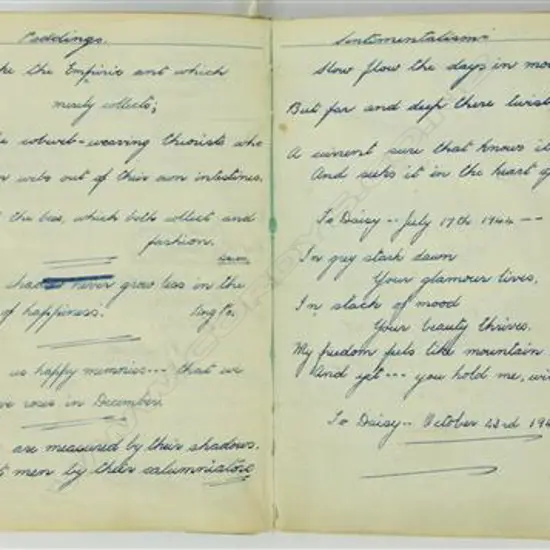 Paddings.
ke the Empiric ant which
merely collects;
e cobweb-weaving theorists who
n webs out of their own intestines.
the bee, which both collect and
fashion.
never grow less in the
of happiness.
us happy memories --- that we
ve roses in December.
are measured by their shadows.
men by their calumniators
Sentimentalism:
Slow flow the days in mo
But far and deep there twist
A current sure that knows it
And seeks it in the heart o
To Daisy -- July 17th 1944 --
In grey stark dawn
Your glamour lives,
In slack of mood
Your beauty thrives.
My freedom feels like mountain
And yet --- you hold me, wi
To Daisy -- October 23rd 194